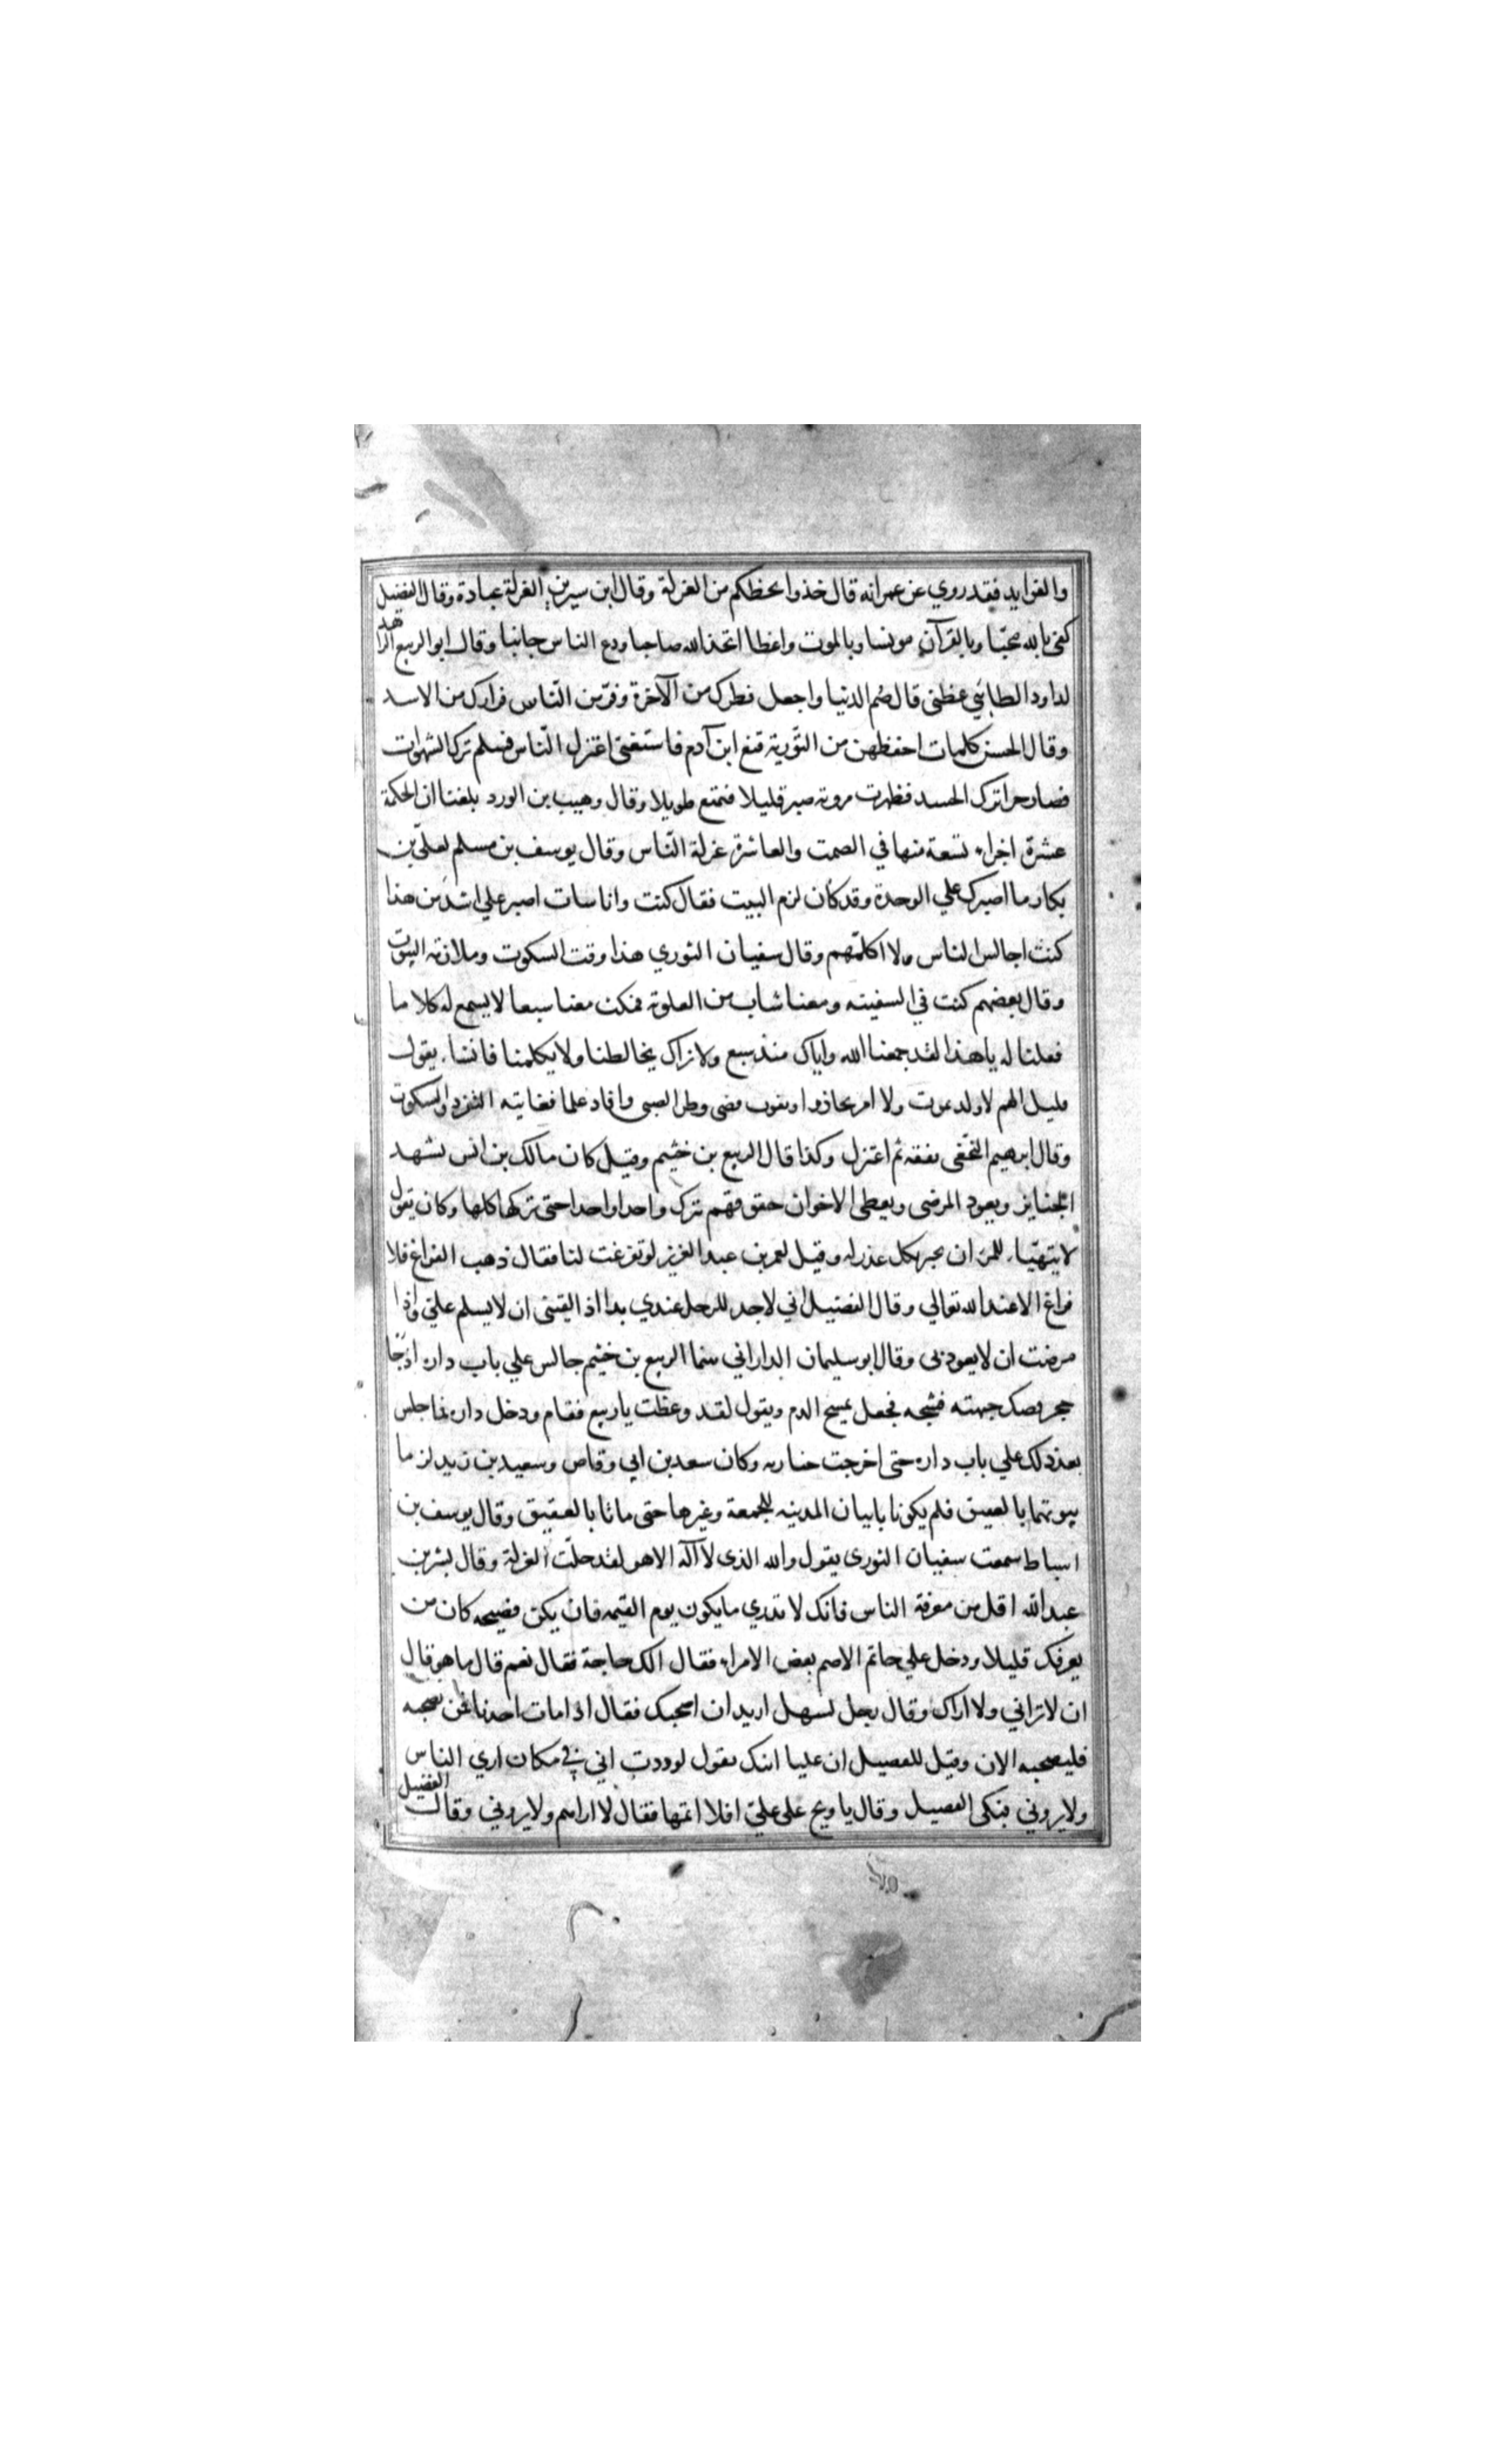 والفوايد فقد روي عن عمر انه قال خذوا بحظكم من العزلة وقال ابن سيرين العزلة عبادة وقال الفضيل
كفى بالله محبّا وبالقرآن مونسا وبالموت واعظا اتخذ الله صاحبا ودع الناس جانبا وقال ابو الربيع الزاهد
لداود الطايي عظني قال صُم الدنيا واجعل فطرك من الآخرة وفرّ من النّاس فرارك من الاسد
وقال الحسن كلمات احفظهن من التّورية قنع ابن آدم فاستغنى اعتزل النّاس فسلم ترك الشهوات
فصار حرا ترك الحسد فظهرت مروته صبر قليلا فتمتع طويلا وقال وهيب بن الورد بلغنا ان الحكمة
عشرة اجزاء تسعة منها في الصمت والعاشرة عزلة النّاس وقال يوسف بن مسلم لعليّ بن
بكار ما اصبرك علي الوحدة وقد كان لزم البيت فقال كنت وانا سات اصبر علي اشد من هذا
كنت اجالس الناس ولا اكلّمهم وقال سفيان الثوري هذا وقت السكوت وملازمة البيوت
وقال بعضهم كنت في السفينه ومعنا شاب من العلوية فمكث معنا سبعا لا يسمع له كلاما
فقلنا له يا هذا لقد جمعنا الله واياك منذ سبع ولا نراك يخالطنا ولا يكلمنا فانشاء يقول
قليل الهم لا ولد يموت ولا امر يحاذر او يفوت قضى وطر الصبى وافاد علما فغايته التفرد والسكوت
وقال ابرهيم النخعي تفقه ثم اعتزل وكذا قال الربيع بن خثيم وقيل كان مالك بن انس يشهد
الجنايز ويعود المرضى ويعطى الاخوان حقوقهم ترك واحدا واحدا حتى تركها كلها وكان يقول
لا يتهيّا للمرء ان يخبر بكل عذر له وقيل لعمر بن عبد العزيز لو تفرغت لنا فقال ذهب الفراغ فلا
فراغ الا عند الله تعالي وقال الفضيل اني لاجد للرجل عندي يدا اذا لقيني ان لا يسلم عليّ واذا
مرضت ان لا يعودني وقال ابو سليمان الداراني بينما الربيع بن خثيم جالس علي باب داره اذ جا
حجر وصك جبهته فشجه فجعل يمسح الدم ويقول لقد وعظت يا ربيع فقام ودخل داره فما جلس
بعد ذلك علي باب داره حتى اخرجت جنازته وكان سعد بن ابي وقاص وسعيد بن زيد لزما
بيوتهما بالعقيق فلم يكونا ياتيان المدينه للجمعة وغيرها حتى ماتا بالعقيق وقال يوسف بن
اسباط سمعت سفيان الثوري يقول والله الذي لا آله الا هو لقد حلّت العزلة وقال بشر بن
عبد الله اقل من معرفة الناس فانك لا تدري ما يكون يوم القيمه فان يكن فضيحه كان من
يعرفك قليلا ودخل علي حاتم الاصم بعض الامراء فقال الك حاجة فقال نعم قال ما هو قال
ان لا تراني ولا اراك وقال رجل لسهل اريد ان اصحبك فقال اذا مات احدنا فمن يصحبه
فليصحبه الان وقيل للفضيل ان عليا ابنك يقول لوددت اني في مكان اري الناس
ولا يروني فبكى الفضيل وقال يا ويح على عليّ افلا اتمها فقال لا اراهم ولا يروني وقال الفضيل